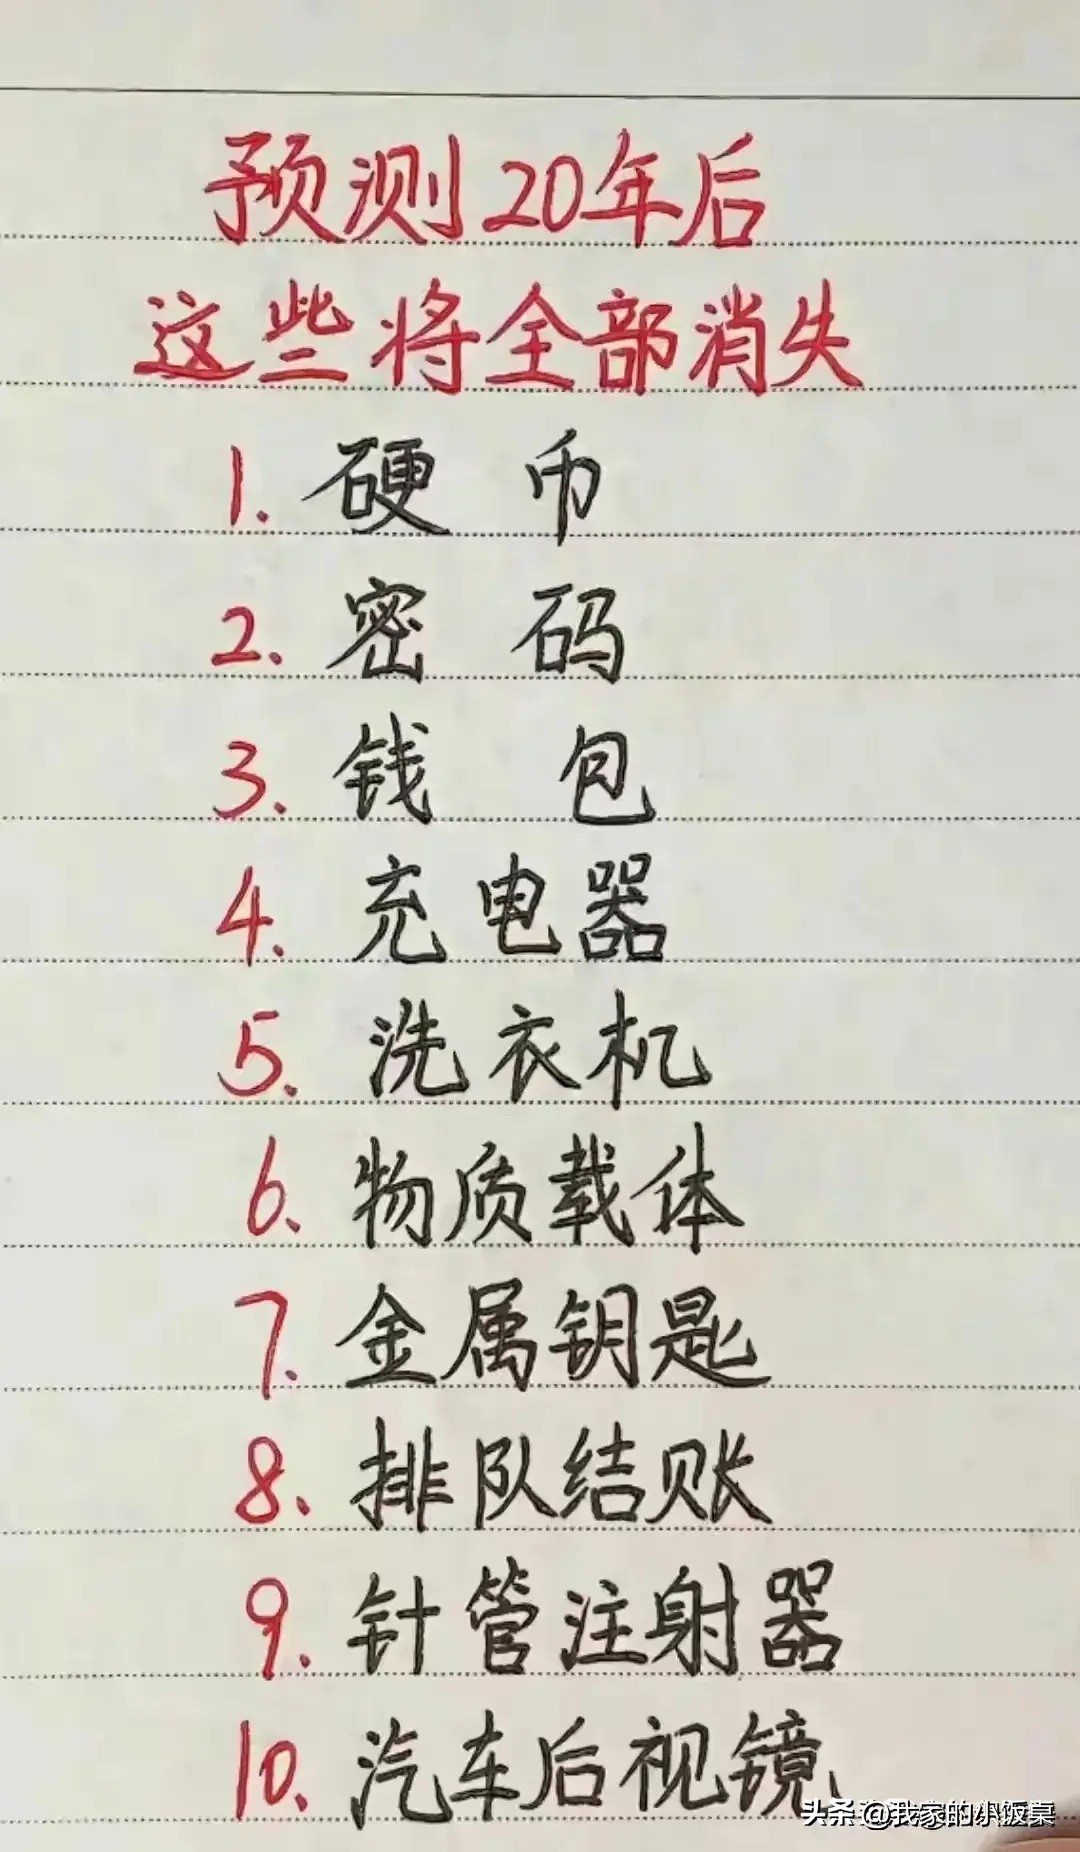 预测20年后
这些将全部消失
1. 硬币
2. 密码
3. 钱包
4. 充电器
5. 洗衣机
6. 物质载体
7. 金属钥匙
8. 排队结账
9. 针管注射器
10. 汽车后视镜
头条 @我家的小饭桌